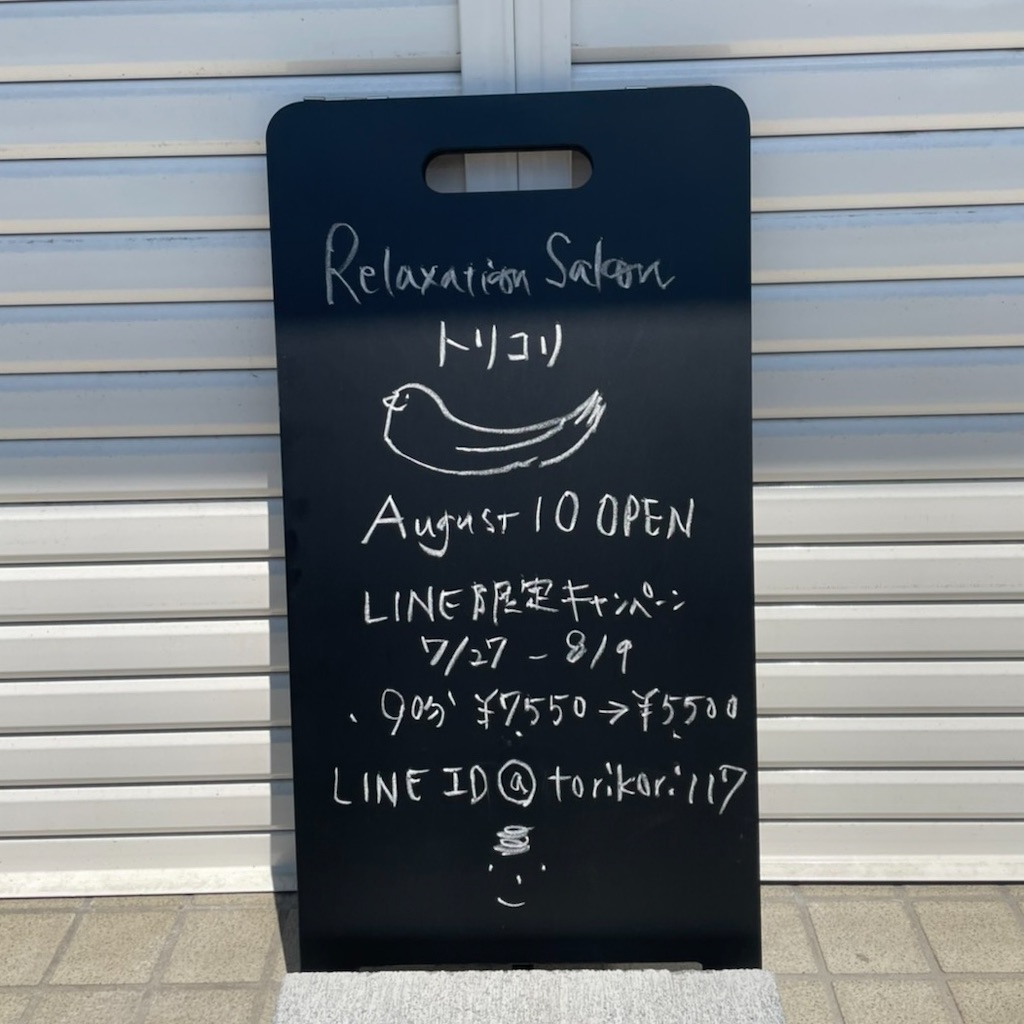 Relaxation Salon
トリコリ
August 10 OPEN
LINE限定キャンペーン
7/27 - 8/9
・90分 ¥7550→¥5500
LINE ID@torikori117